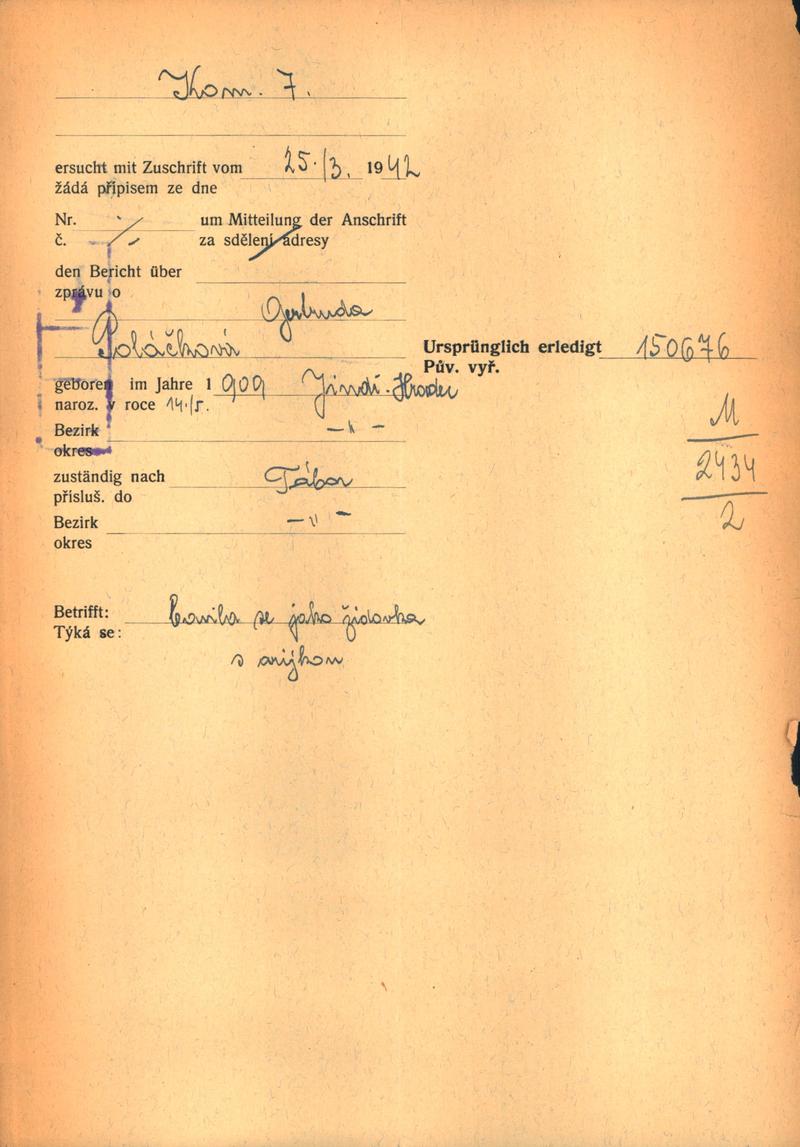 Kom. 7.
ersucht mit Zuschrift vom 25./3. 1942
žádá přípisem ze dne
Nr. um Mitteilung der Anschrift
č. za sdělení adresy
den Bericht über
zprávu o
Gertruda
Poláčková
geboren im Jahre 1909 Jindř. Hradec
naroz. v roce 14./5.
Bezirk — " —
okres
zuständig nach Tábor
přísluš. do
Bezirk — " —
okres
Betrifft: se jako židovka
Týká se:
s
Ursprünglich erledigt 150676
Pův. vyř.
M
2434
2